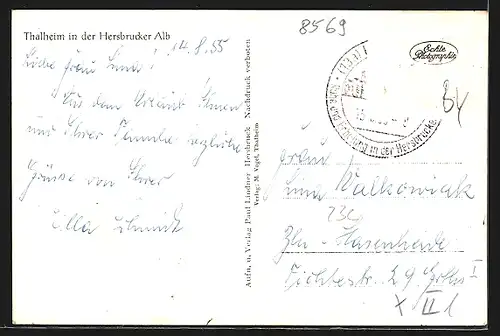 Thalheim in der Hersbrucker Alb
14.8.55
Liebe Frau
Aus dem Urlaub Ihnen
und Ihrer Familie herzliche
Grüsse von Ihrer
Ella Schmidt
Aufn. u. Verlag Paul Lindner Hersbruck Nachdruck verboten
Verlag: M. Vogel, Thalheim
8569
Echte
Photographie
in der Hersbrucker
B4
Frau
Walkowiak
Bln-Hasenheide
Fichtestr. 29
X II 1